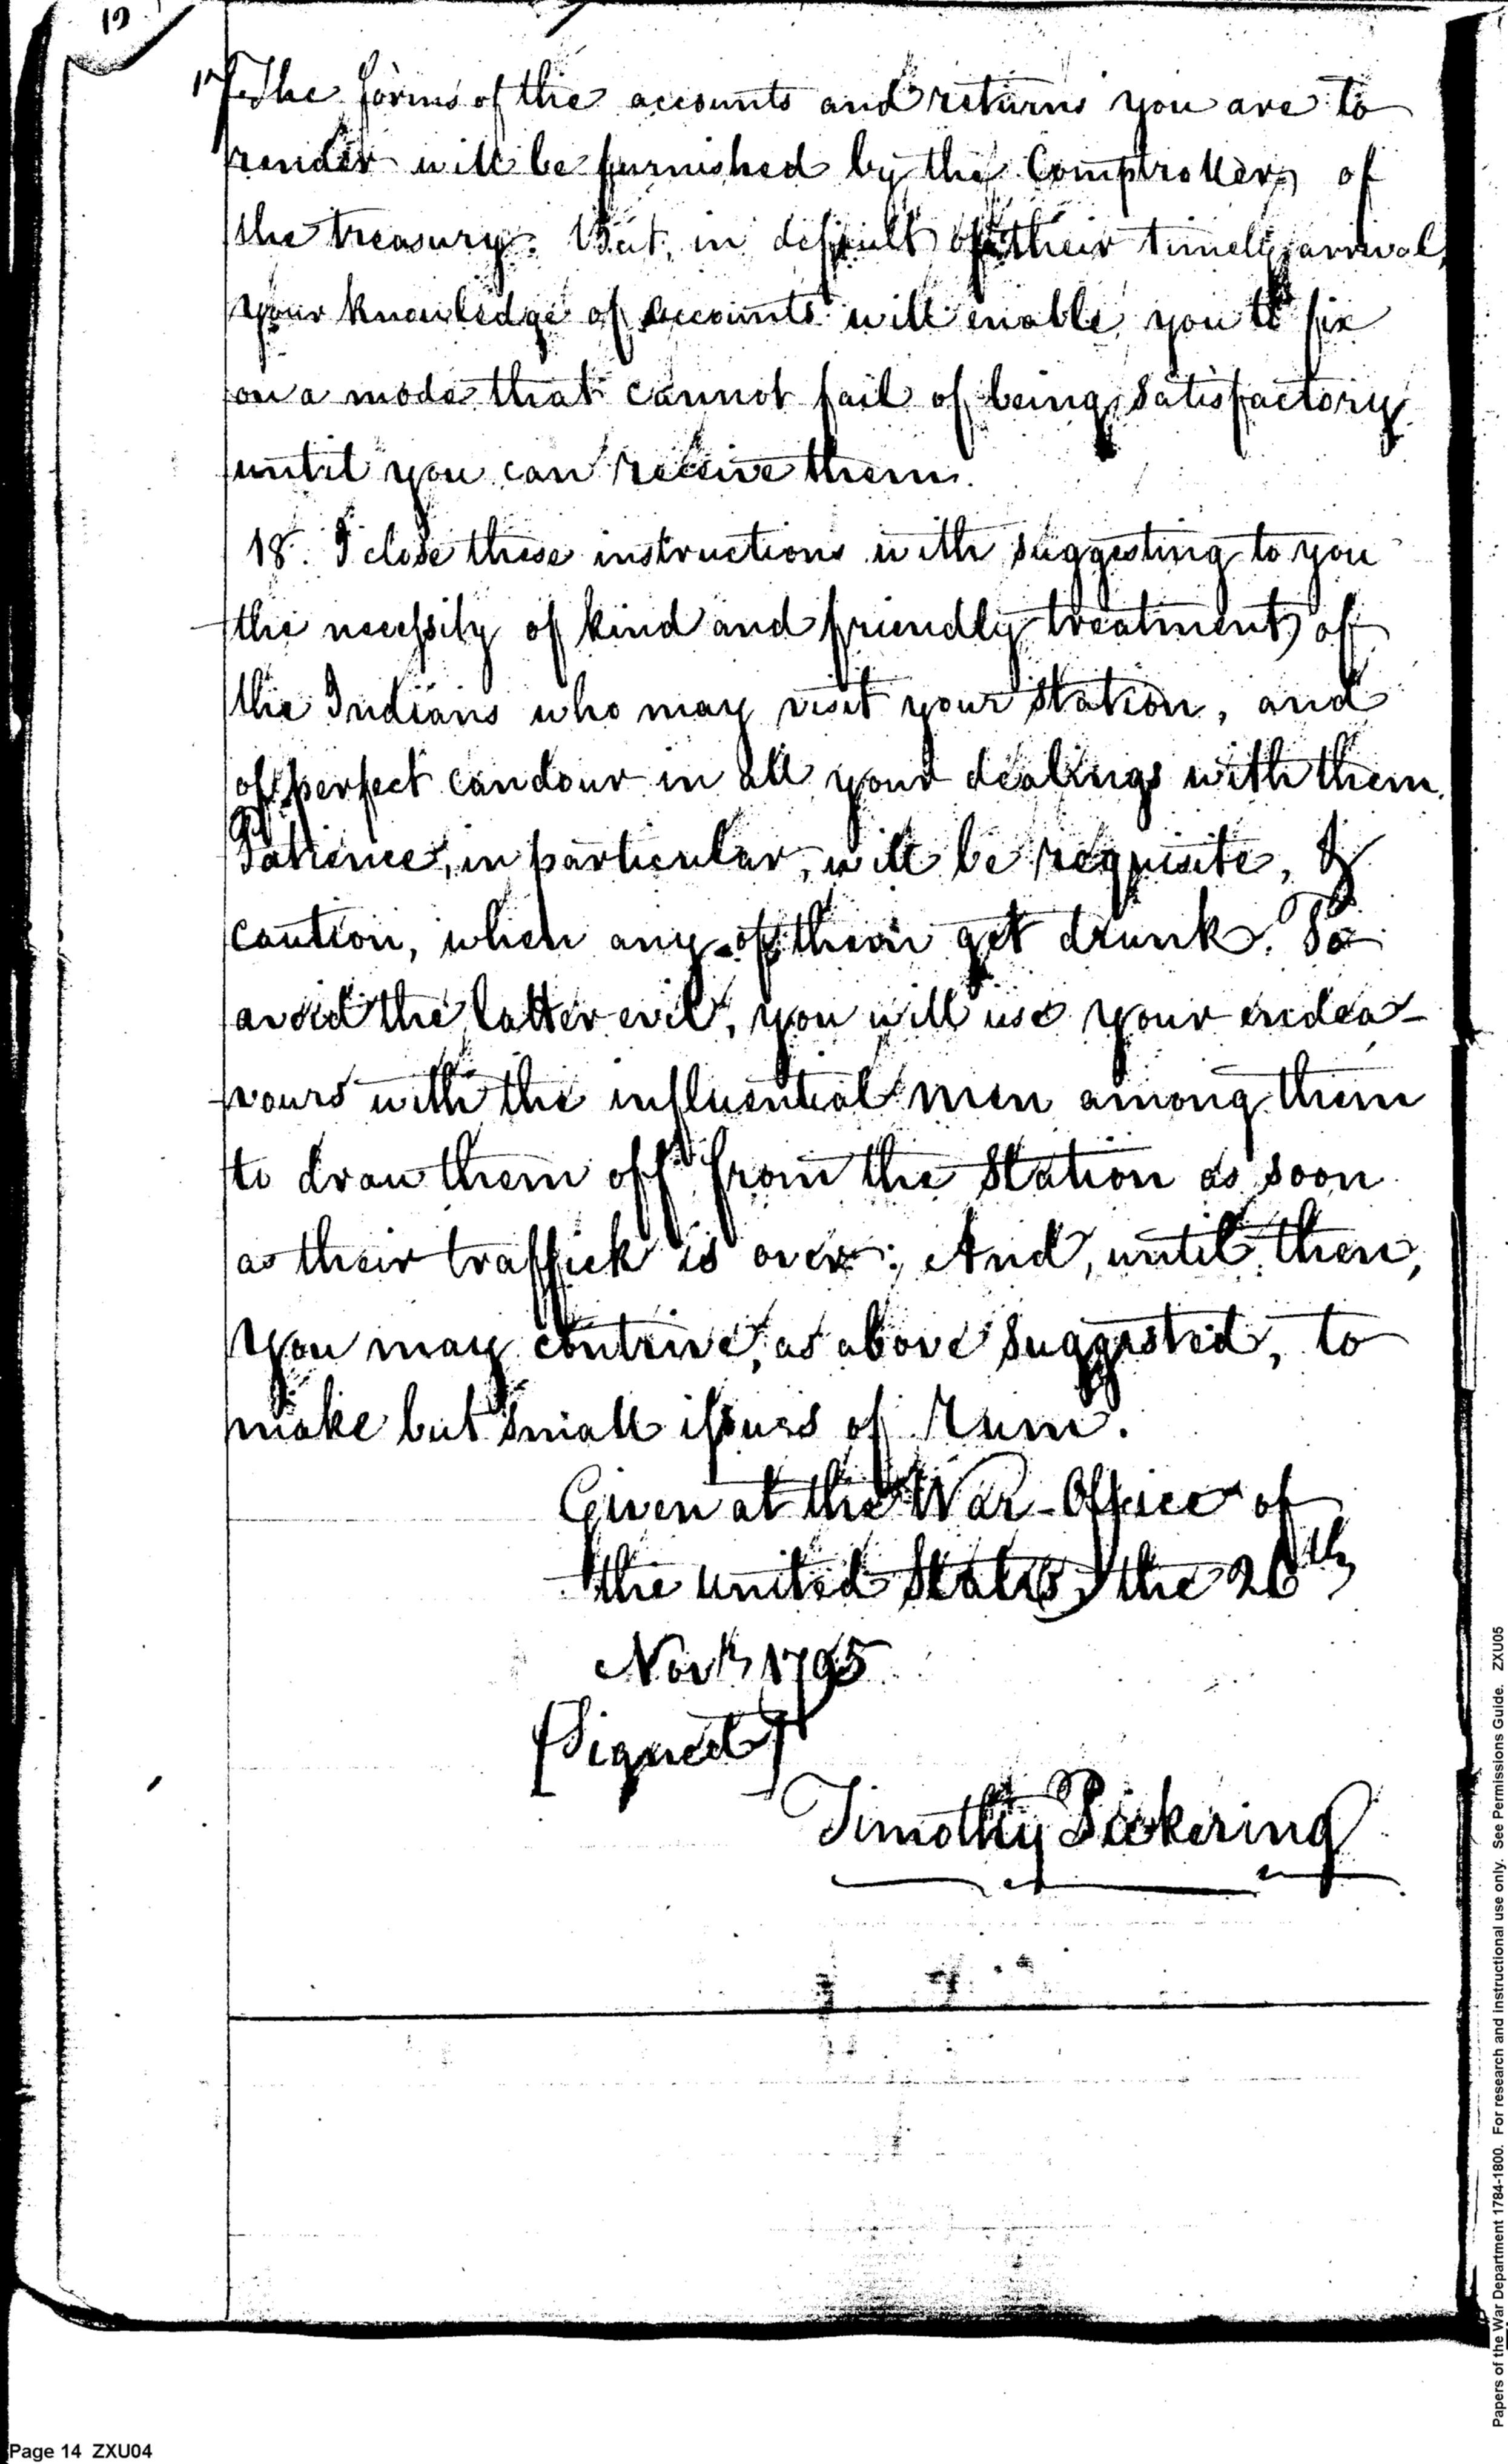 17. The forms of the accounts and returns you are to
render will be furnished by the Comptroller of
the treasury. But, in default of their timely arrival,
your knowledge of accounts will enable you to fix
on a mode that cannot fail of being satisfactory
until you can receive them.
18. I close these instructions with suggesting to you
the necessity of kind and friendly treatment of
the Indians who may visit your station, and
of perfect candour in all your dealings with them.
Patience, in particular, will be requisite, &
caution, when any of them get drunk. To
avoid the latter evil, you will use your endea-
vours with the influential men among them
to draw them off from the Station as soon
as their traffick is over; And, until then,
you may contrive, as above suggested, to
make but small issues of rum.
Given at the War-Office of
the united States, the 26th
Novr. 1795
(Signed)
Timothy Pickering
Page 14 ZXU04
Papers of the War Department 1784-1800. For research and instructional use only. See Permissions Guide. ZXU05